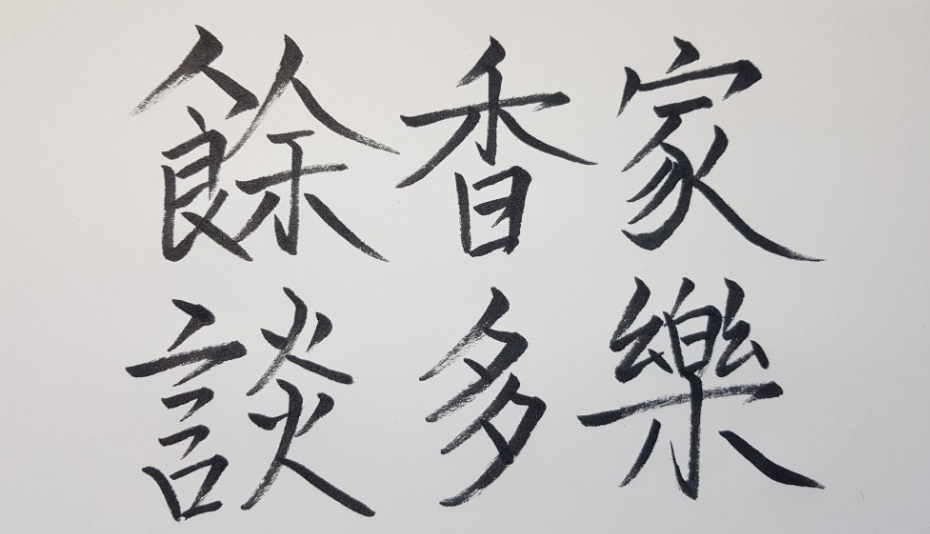 家樂
香多
餘談